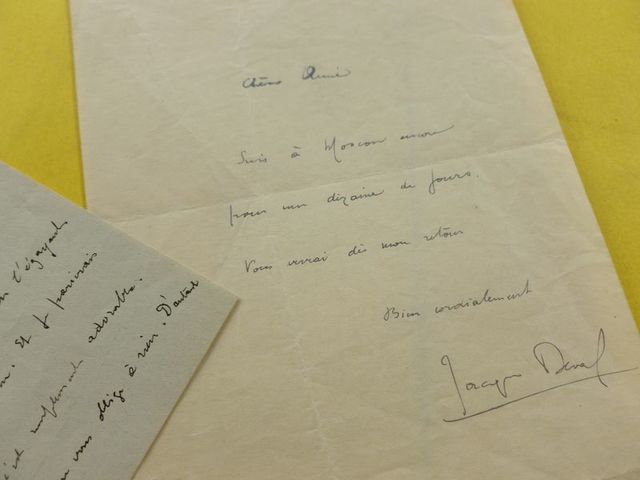 Chère Amie
Suis à Moscou encore
pour une dizaine de jours.
Vous verrai dès mon retour
Bien cordialement
Jacques Deval
l'égayant
Et je
simplement adorable.
vous oblige à rien. D'autant